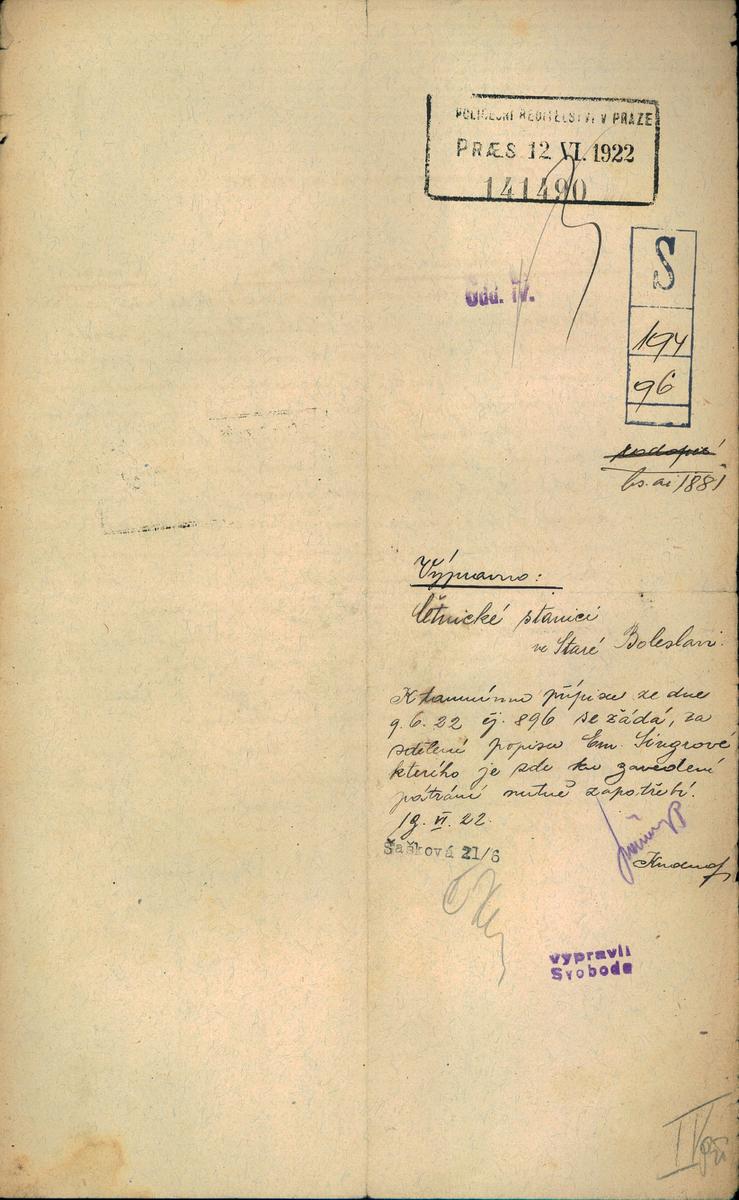 POLICEJNÍ ŘEDITELSTVÍ V PRAZE
PRÆS 12 VI. 1922
141490
Odd. IV.
S
194
96
1881
Výpravno:
četnické stanici
ve Staré Boleslavi.
K tamnímu přípisu ze dne
9. 6. 22 čj. 896 se žádá, za
sdělení popisu Em. Singrové
kterého je zde ku zavedení
pátrání nutně zapotřebí.
19. VI. 22.
Šašková 21/6
vypravil
Svoboda
IV